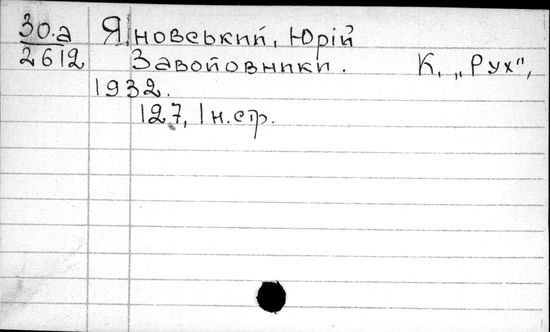 30.а Яновський, Юрій
2612 Завойовники. К, „Рух",
1932.
127, 1 н.стр.